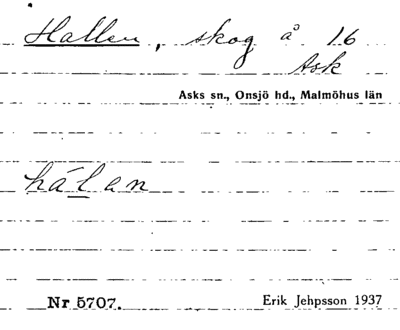 Hallen, skog å 16
Ask
Asks sn., Onsjö hd., Malmöhus län
hálan
Nr 5707.
Erik Jehpsson 1937